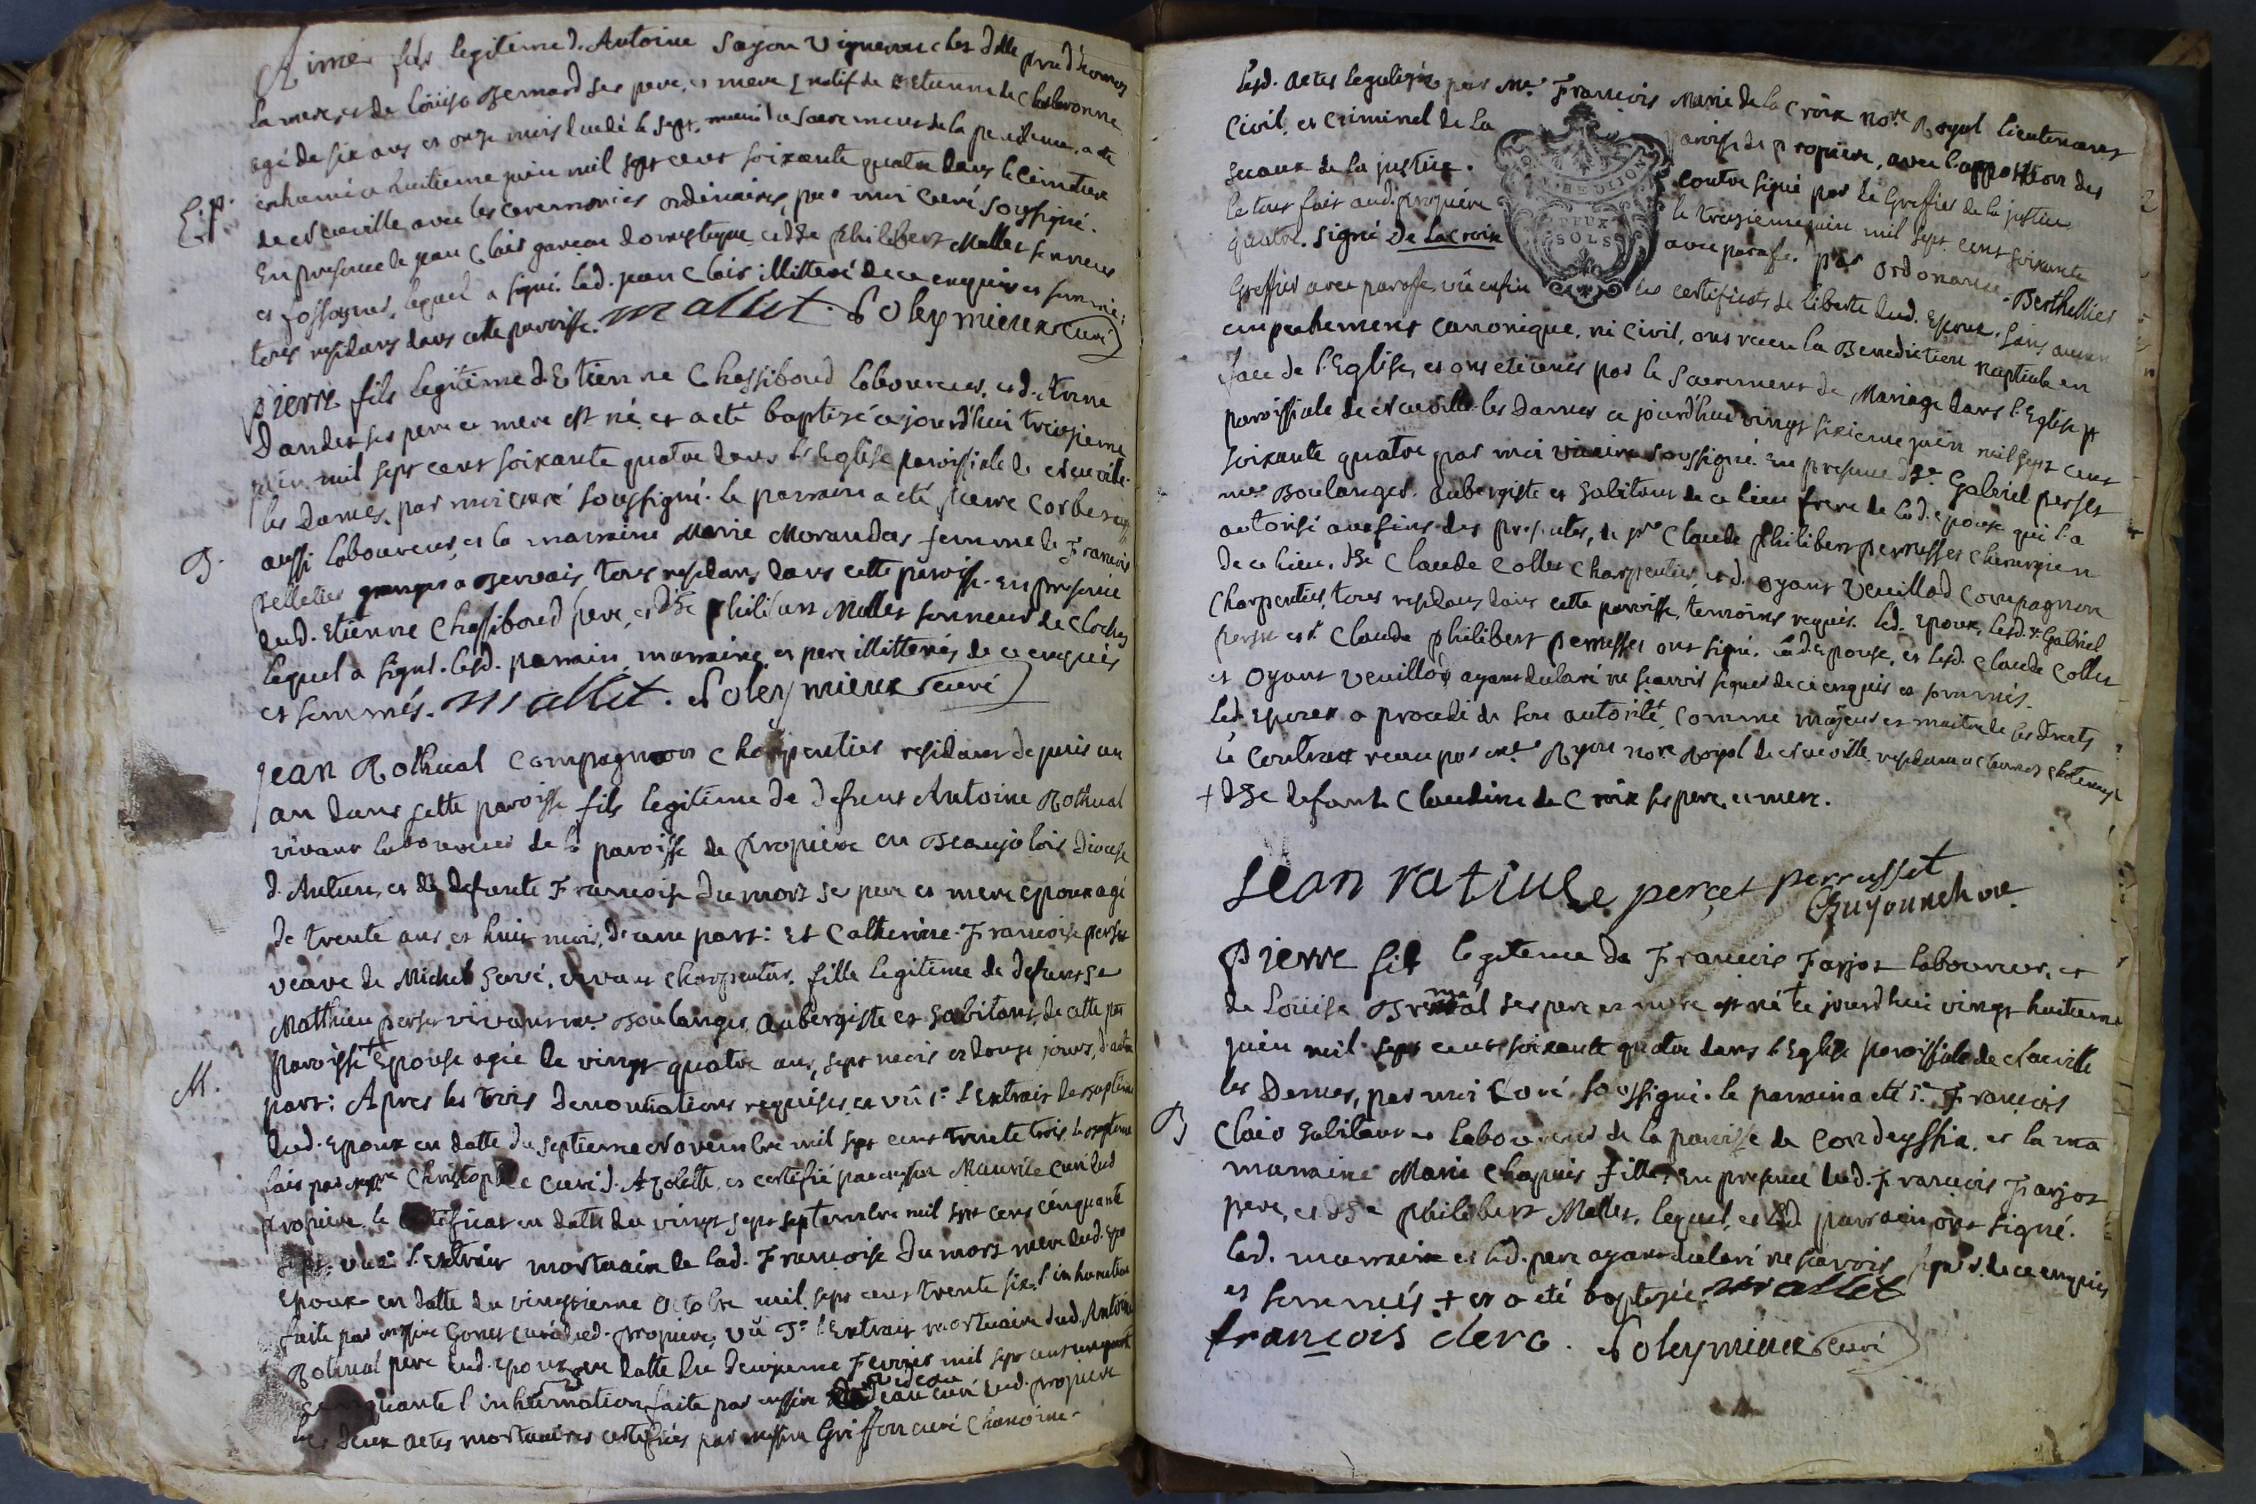 Aimé fils legitime d. Antoine Sayon Vigneron chez
la mere, et de Loüise Bernard ses pere, et mere natif de St Etienne de Chalaronne
agé de six ans et onze mois decedé le sept, muni du Sacrement de la penitence, a eté
E.p. enhumé ce huitieme juin mil sept cent soixante quatre dans le Cimitiere
de Neuville avec les ceremonies ordinaires, par moi Curé soussigné.
En presence de jean Clais garçon domestique et de Philibert Mallet sonneur
et fossoyeur, lequel a signé. led. jean Clais illitteré de ce enquis et sommé;
tous residans dans cette paroisse. Mallet. Soleymieux curé
Pierre fils legitime d'Etienne Chassiboud laboureur, et d.
Dandet ses pere et mere est né et a eté baptizé ce jourd'hui treizieme
juin mil sept cent soixante quatre dans l'Eglise paroissiale de Neuville
les Dames, par moi curé soussigné. le parrain a eté pierre
B. aussi laboureur, et la marraine Marie Morandas femme de Francois
pelletier granger a Bervais, tous residans dans cette paroisse. En presence
dud. Etienne Chassiboud pere, et de Philibert Mallet sonneur de Cloches
lequel a signé. lesd. parrain, marraine, et pere illitterés de ce enquis
et sommés. Mallet. Soleymieux curé
Jean Rothival Compagnon Charpentier residant depuis un
an dans cette paroisse fils legitime de defunt Antoine Rothival
vivant laboureur de la paroisse de Propiere en Beaujolois Diocese
d. Autun, et de defunte Francoise Dumort ses pere et mere epoux agé
de trente ans et huit mois, d'une part: Et Catherine Francoise perset
veuve de Michel Servé, vivant charpentier, fille legitime de defunt Sr
Matthieu perset vivant me. Boulanger Aubergiste et habitant de cette par
M. paroisse + Epouse agée de vingt quatre ans, sept mois et douze jours, d'autre
part: Apres les trois denonciations requises, et vû 1° l'Extrait
dud. Epoux en datte du septieme Novembre mil sept cent trente trois le
fait par messire Christophle curé d. Azolette, et certifié par messire Maurile curé dud
propiere, le certificat en datte du vingt sept septembre mil sept cent cinquante
sept. vu 2° l'extrait mortuaire de lad. Francoise Dumort mere dud. Epo
Epoux en datte du vingtieme Octobre mil sept cent trente six. l'inhumation
faite par messire Gonet curé dud. propiere, vû 3° l'Extrait mortuaire dud. Antoine
Rothival pere dud. epoux en datte du deuzieme Fevrier mil sept cent
cinquante l'inhumation faite par messire curé dud. propiere
les deux actes mortuaires certifiés par messire Griffon curé Chanoine
lesd. actes legalisés par Me. Francois Marie de la Croix nore. Royal lieutenant
Civil, et Criminel de la paroisse de propiere, avec l'apposition des
Sceaux de la justice. contre signé par le Greffier de la justice
le tout fait aud. propiere le treizieme juin mil sept cent soixante
quatre. signé De Lacroix avec parafe. par ordonance. Berthellier
DEUX
SOLS
Greffier avec parafe, vû enfin les certificats de liberté dud. Epoux. sans aucun
empechement canonique, ni civil, ont recu la Benediction nuptiale en
face de l'Eglise, et ont eté unis par le Sacrement de Mariage dans l'Eglise p
paroissiale de Neuville les Dames ce jourd'hui vingt sixieme juin mil sept cent
soixante quatre par moi vicaire soussigné. En presence de Sr. Gabriel perset
me Boulanger. Aubergiste et habitant de ce lieu frere de lad. epouse qui l'a
autorisé aux fins des presentes, de Sr. Claude Philibert perrusset Chirurgien
de ce lieu, de Claude Collet Charpentier, et d. Oyant Veuillod Compagnon
Charpentier, tous residans dans cette paroisse, temoins requis. led. Epoux, lesd. Sr. Gabriel
perset et Sr. Claude Philibert perrusset ont signé. lad. Epouse, et lesd. Claude Collet
et Oyant Veuillod, ayant declaré ne scavoir signer de ce enquis et sommés.
led. Epoux a procedé de son autorité, comme majeur et maitre de ses droits
le Contract recu par me. Ryon nore. Royal de Neuville, residant a
+ de defunte Claudine de Croix ses pere, et mere.
Jean rativel perçet perrusset
Guyonnet vre.
Pierre fils legitime de Francois Farjot laboureur, et
de Loüise ses pere et mere est né + ce jourd'hui vingt huitieme
juin mil sept cent soixante quatre dans l'Eglise paroissiale de Neuville
les Dames, par moi Curé soussigné. le parrain a eté Sr. Francois
B Clerc habitant et laboureur de la paroisse de Condeyssia, et la ma
marraine Marie Chapuis fille. En presence dud. Francois Farjot
pere, et de Philibert Mallet, lequel, et led. parrain ont signé.
lad. marraine et led. pere ayant declaré ne scavoir signer. de ce enquis
et sommés + et a été baptizé. Mallet
francois clerc. Soleymieux curé